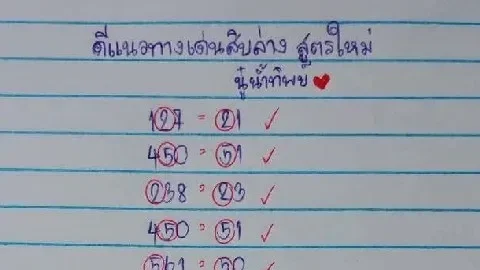 ตีแนวทางเด่นสิบล่าง สูตรใหม่
ปู่น้ำทิพย์
127 = 21 ✓
450 = 51 ✓
238 = 23 ✓
450 = 51 ✓
561 = 50